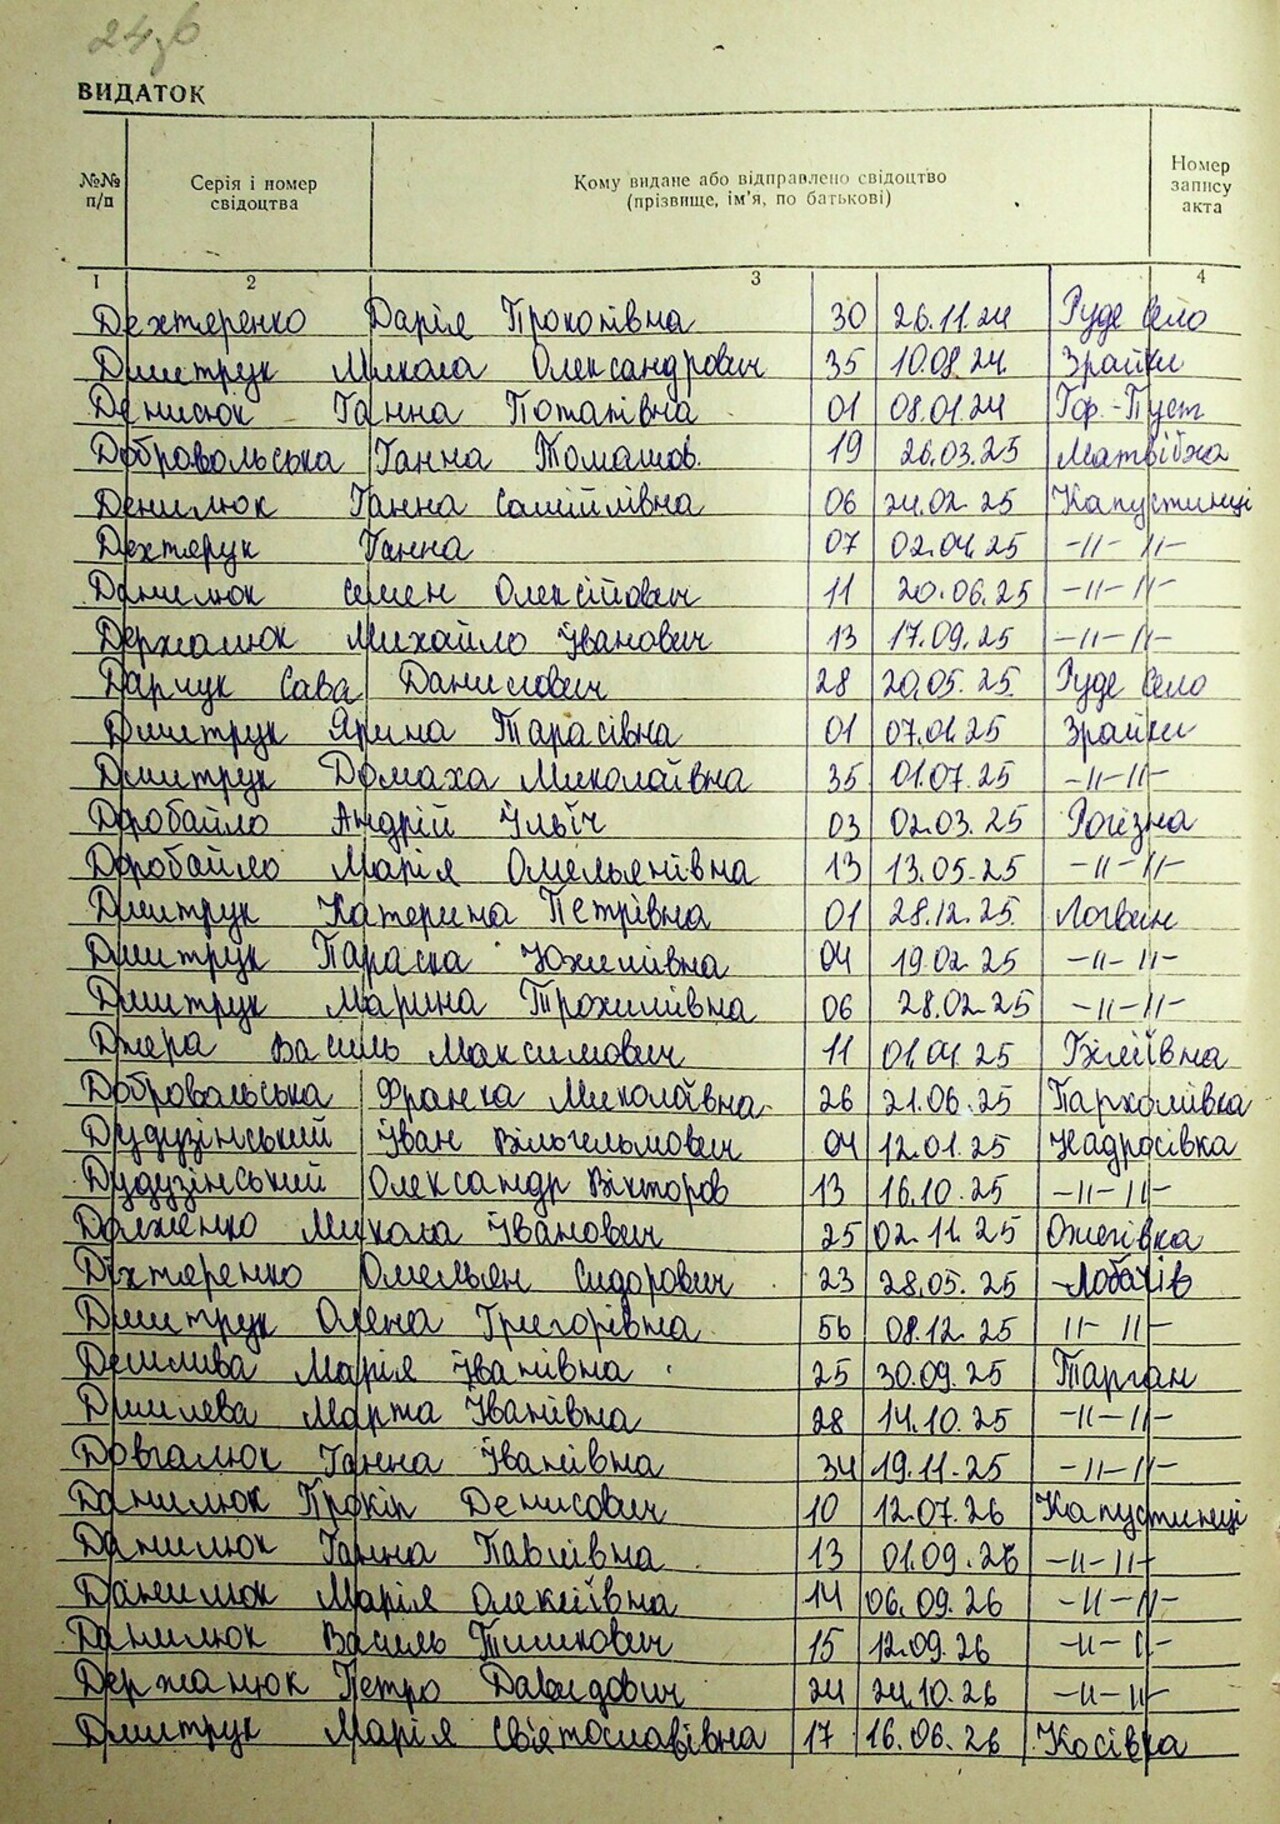 24зв
ВИДАТОК
№№ п/п
Серія і номер свідоцтва
Кому видане або відправлено свідоцтво (прізвище, ім'я, по батькові)
Номер запису акта
1 2 3 4
Дехтяренко Дарія Прокопівна 30 26.11.24 Руде Село
Дмитрук Микола Олександрович 35 10.08.24 Зрайки
Денисюк Ганна Потапівна 01 08.01.24 Гор.-Пуст
Добровольська Ганна Томашов. 19 26.03.25 Матвіїха
Денилюк Ганна Самійлівна 06 24.02.25 Капустинці
Дехтярук Ганна 07 02.04.25 -11- 11-
Данилюк Семен Олексійович 11 20.06.25 -11- 11-
Держалюк Михайло Іванович 13 17.09.25 -11- 11-
Дарчук Сава Данилович 28 20.05.25. Руде Село
Дмитрук Ярина Тарасівна 01 07.01.25 Зрайки
Дмитрук Домаха Миколаївна 35 01.07.25 -11-11-
Дробайло Андрій Ільїч 03 02.03.25 Рогізна
Дробайло Марія Омелянівна 13 13.05.25 -11-11-
Дмитрук Катерина Петрівна 01 28.12.25. Логвин
Дмитрук Параска Юхимівна 04 19.02.25 -11- 11-
Дмитрук Марина Трохимівна 06 28.02.25 -11-11-
Джера Василь Максимович 11 01.04.25
Добровольська Франка Миколаївна 26 21.06.25 Пархомівка
Дудузінський Іван Вільгельмович 04 12.01.25 Надросівка
Дудузінський Олександр Вікторов 13 16.10.25 -11- 11-
Долженко Микола Іванович 25 02.11.25 Ожегівка
Діхтяренко Омельян Сидорович 23 28.05.25 Лобачів
Дмитрук Олена Григорівна 56 08.12.25 11- 11-
Марія Іванівна 25 30.09.25 Тарган
Марта Іванівна 28 14.10.25 -11-11-
Довгалюк Ганна Іванівна 34 19.11.25 -11-11-
Данилюк Прокіп Денисович 10 12.07.26 Капустинці
Данилюк Ганна Павлівна 13 01.09.26 -11-11-
Данилюк Марія Олексіївна 14 06.09.26 -11-11-
Данилюк Василь Тимкович 15 12.09.26 -11- 11-
Держанюк Петро Давидович 24 24.10.26 -11-11-
Дмитрук Марія Святославівна 17 16.06.26 Косівка